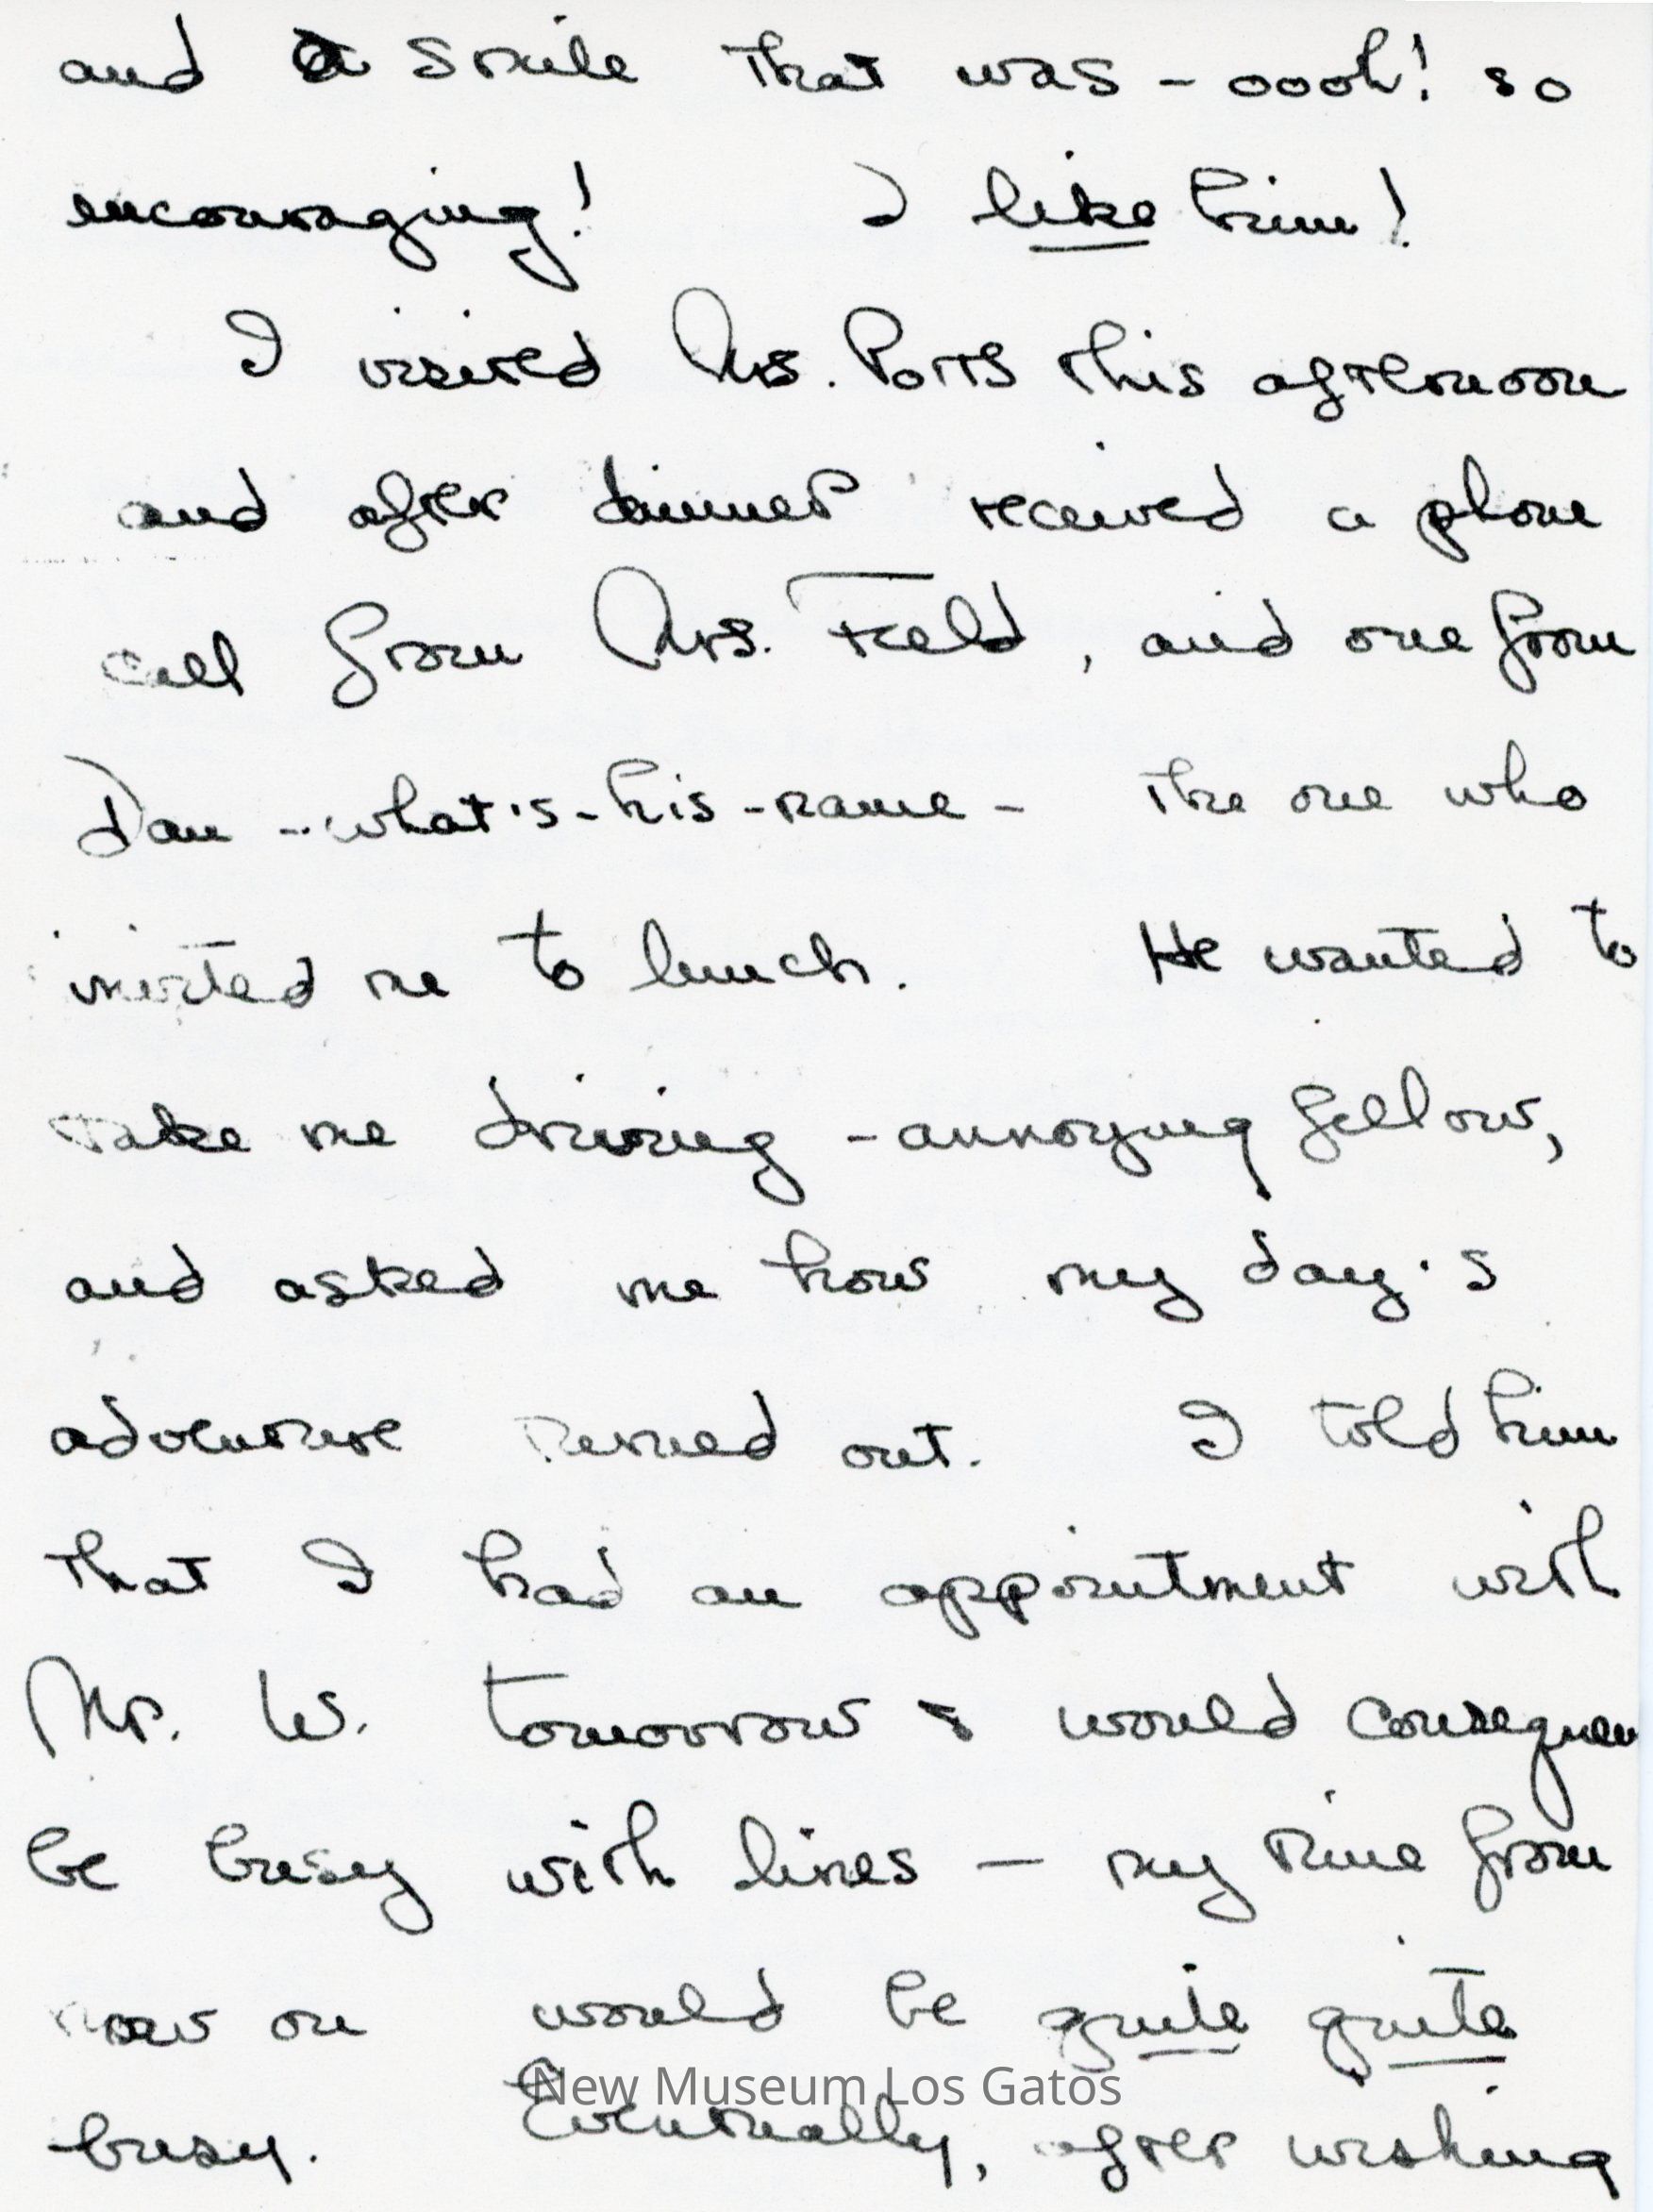 and a smile that was - oooh! so
encouraging! I like him!
I visited Mrs. Potts this afternoon
and after dinner received a phone
call from Mrs. Field, and one from
Dan - what's-his-name - the one who
invited me to lunch. He wanted to
take me driving - annoying fellow,
and asked me how my day's
adventure turned out. I told him
that I had an appointment with
Mr. W. tomorrow & would consequen
be busy with lines — my time from
now on would be quite quite
New Museum Los Gatos
busy. Eventually, after wishing